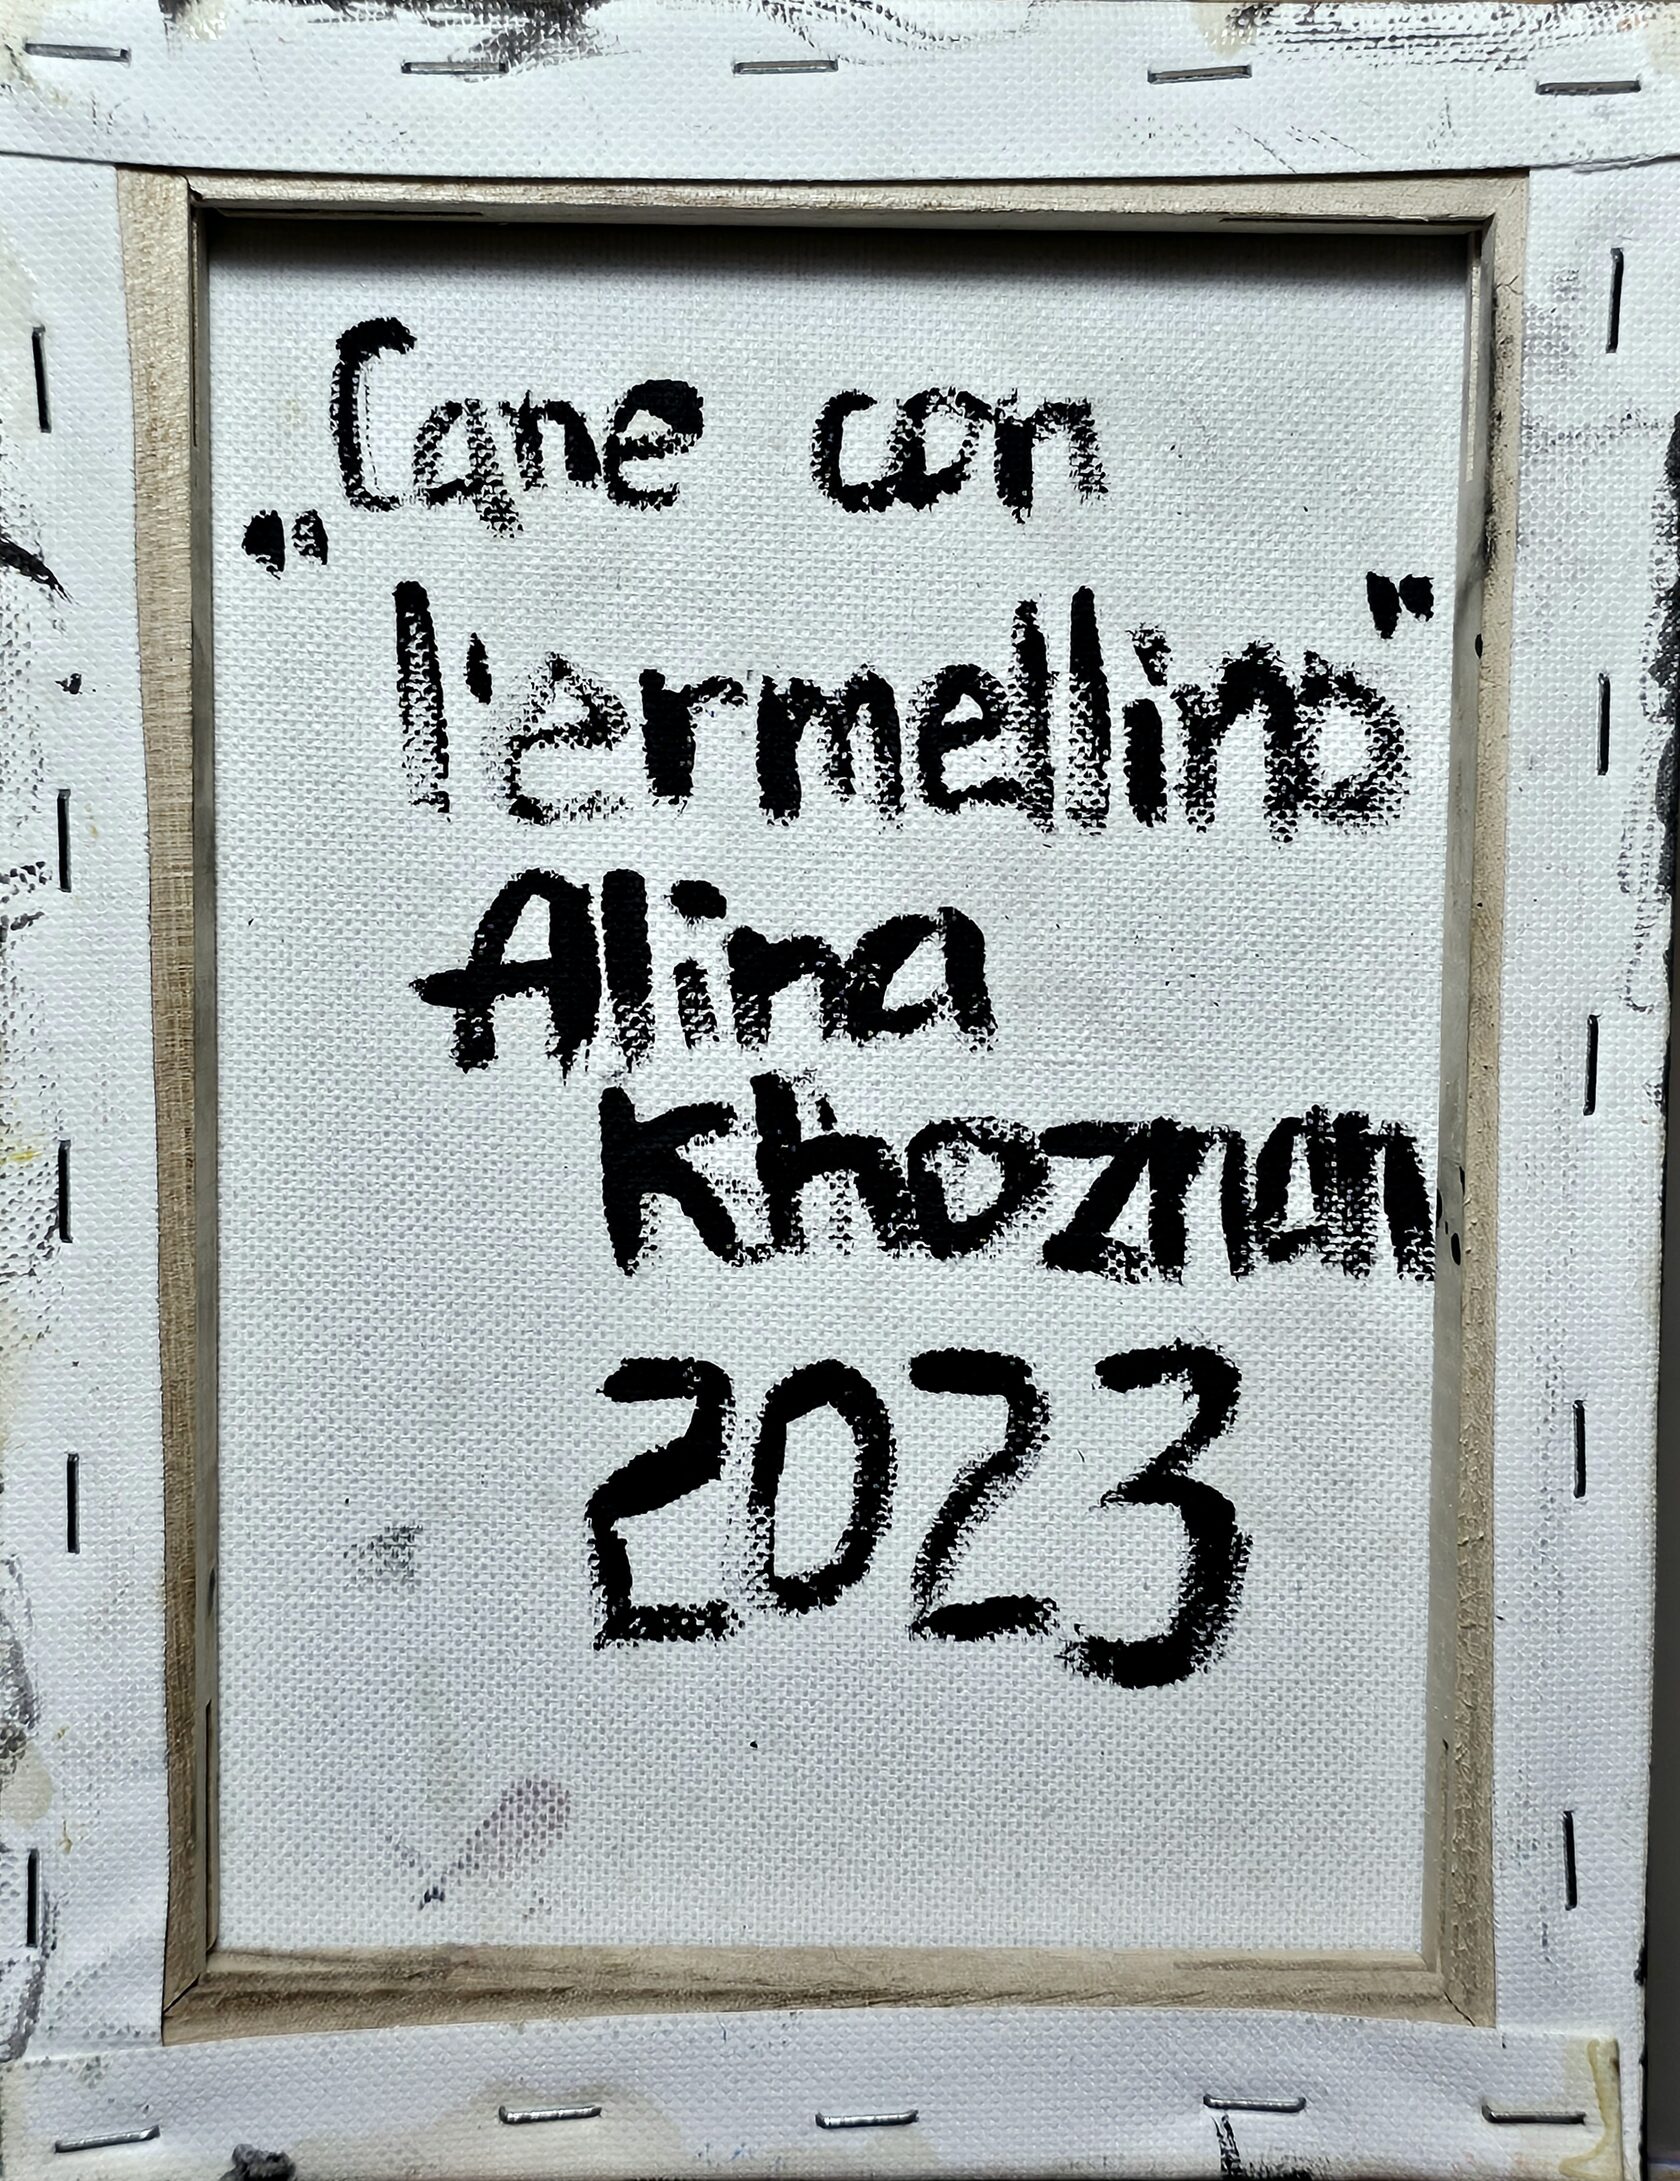 "Cane con
l'ermellino"
Alina
Khoznan
2023